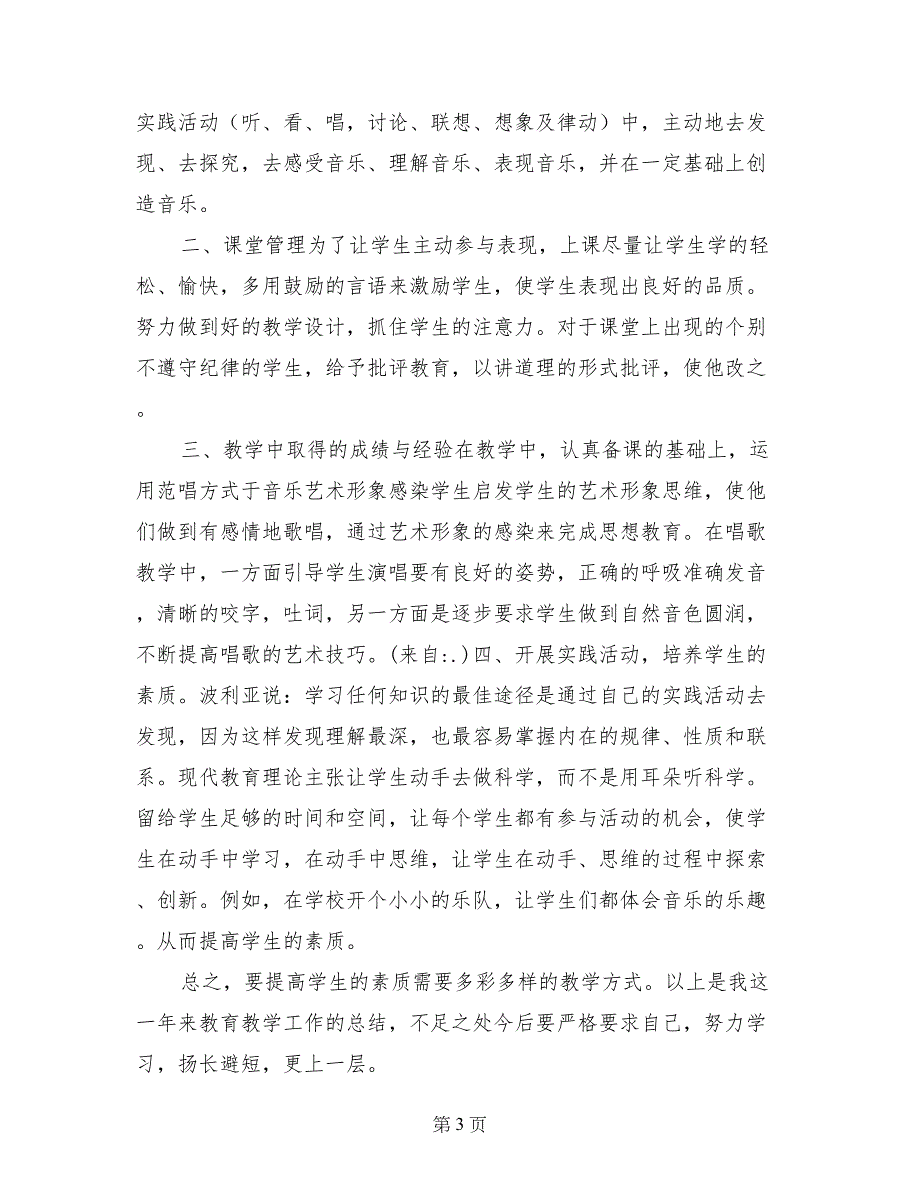 实践活动（听、看、唱，讨论、联想、想象及律动）中，主动地去发
现、去探究，去感受音乐、理解音乐、表现音乐，并在一定基础上创
造音乐。
二、课堂管理为了让学生主动参与表现，上课尽量让学生学的轻
松、愉快，多用鼓励的言语来激励学生，使学生表现出良好的品质。
努力做到好的教学设计，抓住学生的注意力。对于课堂上出现的个别
不遵守纪律的学生，给予批评教育，以讲道理的形式批评，使他改之
。
三、教学中取得的成绩与经验在教学中，认真备课的基础上，运
用范唱方式于音乐艺术形象感染学生启发学生的艺术形象思维，使他
们做到有感情地歌唱，通过艺术形象的感染来完成思想教育。在唱歌
教学中，一方面引导学生演唱要有良好的姿势，正确的呼吸准确发音
，清晰的咬字，吐词，另一方面是逐步要求学生做到自然音色圆润，
不断提高唱歌的艺术技巧。(来自:.)四、开展实践活动，培养学生的
素质。波利亚说：学习任何知识的最佳途径是通过自己的实践活动去
发现，因为这样发现理解最深，也最容易掌握内在的规律、性质和联
系。现代教育理论主张让学生动手去做科学，而不是用耳朵听科学。
留给学生足够的时间和空间，让每个学生都有参与活动的机会，使学
生在动手中学习，在动手中思维，让学生在动手、思维的过程中探索
、创新。例如，在学校开个小小的乐队，让学生们都体会音乐的乐趣
。从而提高学生的素质。
总之，要提高学生的素质需要多彩多样的教学方式。以上是我这
一年来教育教学工作的总结，不足之处今后要严格要求自己，努力学
习，扬长避短，更上一层。
第 3 页